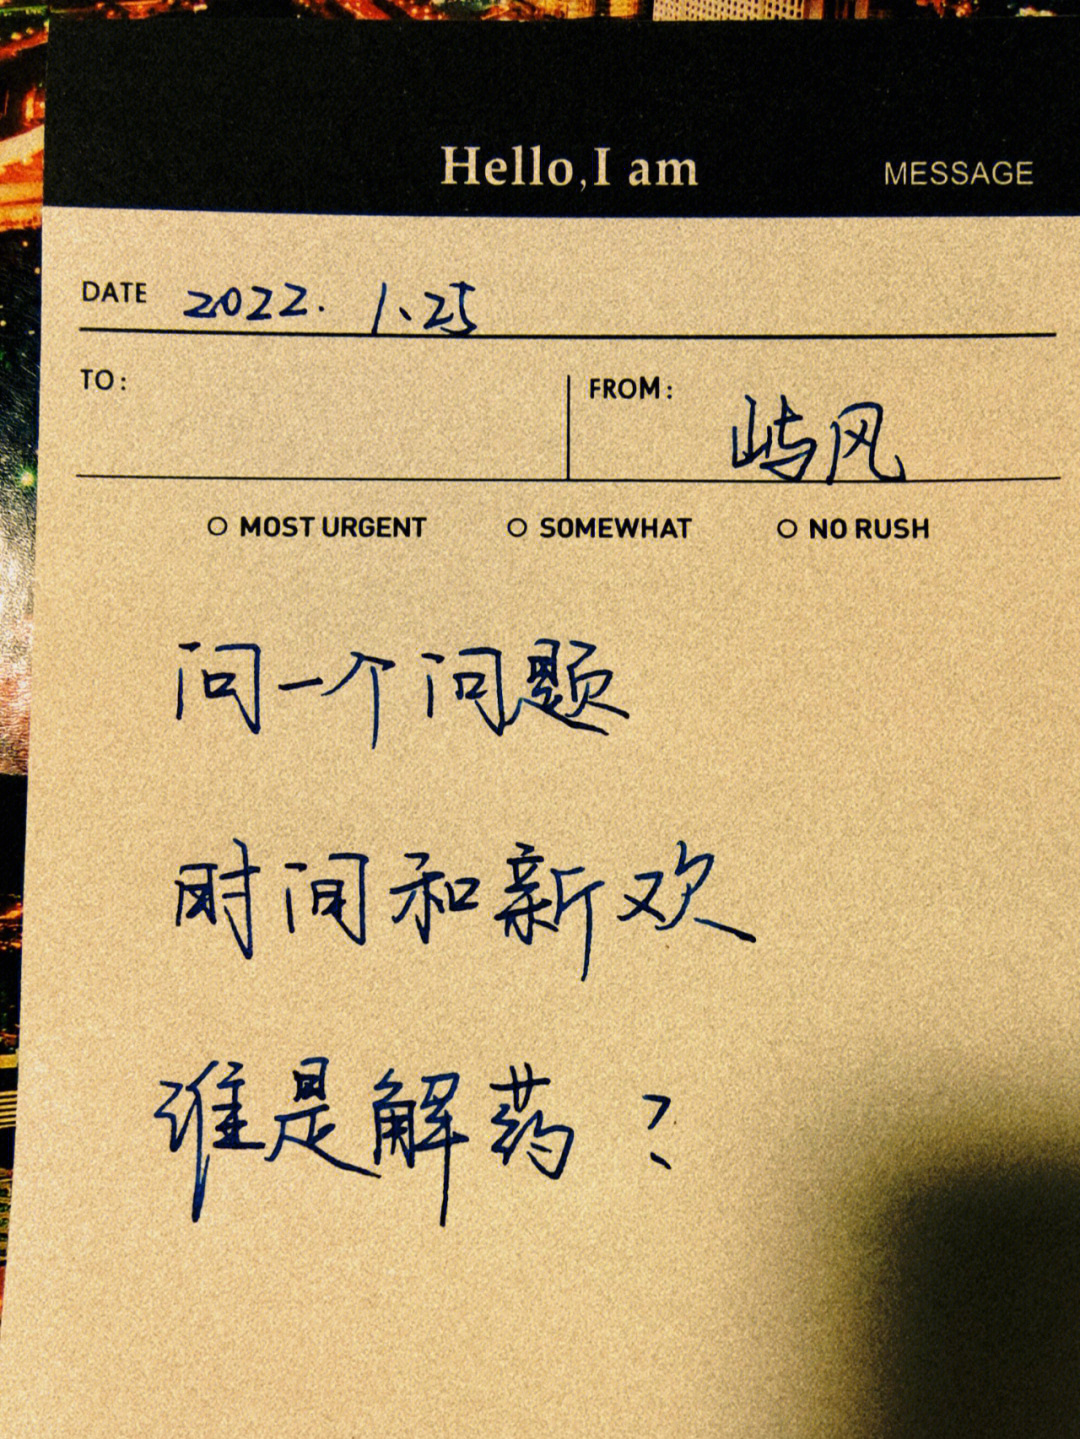 Hello, I am MESSAGE
DATE 2022. 1、25
TO: FROM: 屿风
MOST URGENT SOMEWHAT NO RUSH
问一个问题
时间和新欢
谁是解药？